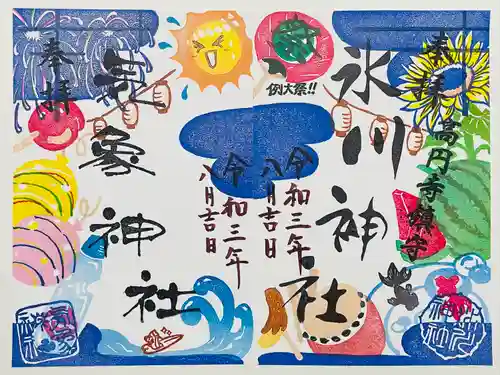 奉拝
高円寺鎮守
氷川神社
例大祭!!
令和三年
八月吉日
奉拝
気象神社
令和三年
八月吉日